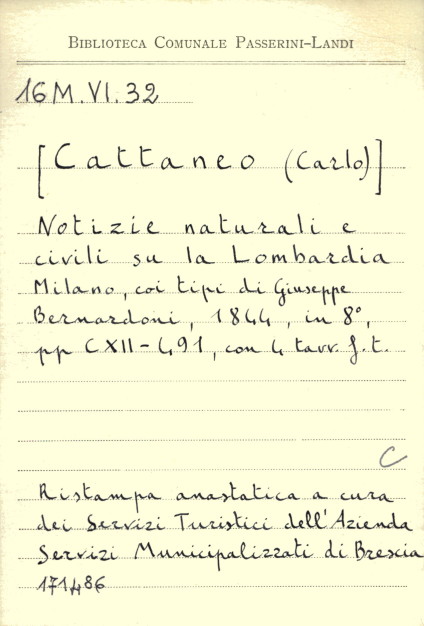 BIBLIOTECA COMUNALE PASSERINI-LANDI
16M.VI.32
[Cattaneo (Carlo)]
Notizie naturali e
civili su la Lombardia
Milano, coi tipi di Giuseppe
Bernardoni, 1844, in 8°,
pp CXII-491, con 4 tavv. f.t.
C
Ristampa anastatica a cura
dei Servizi Turistici dell'Azienda
Servizi Municipalizzati di Brescia
171486